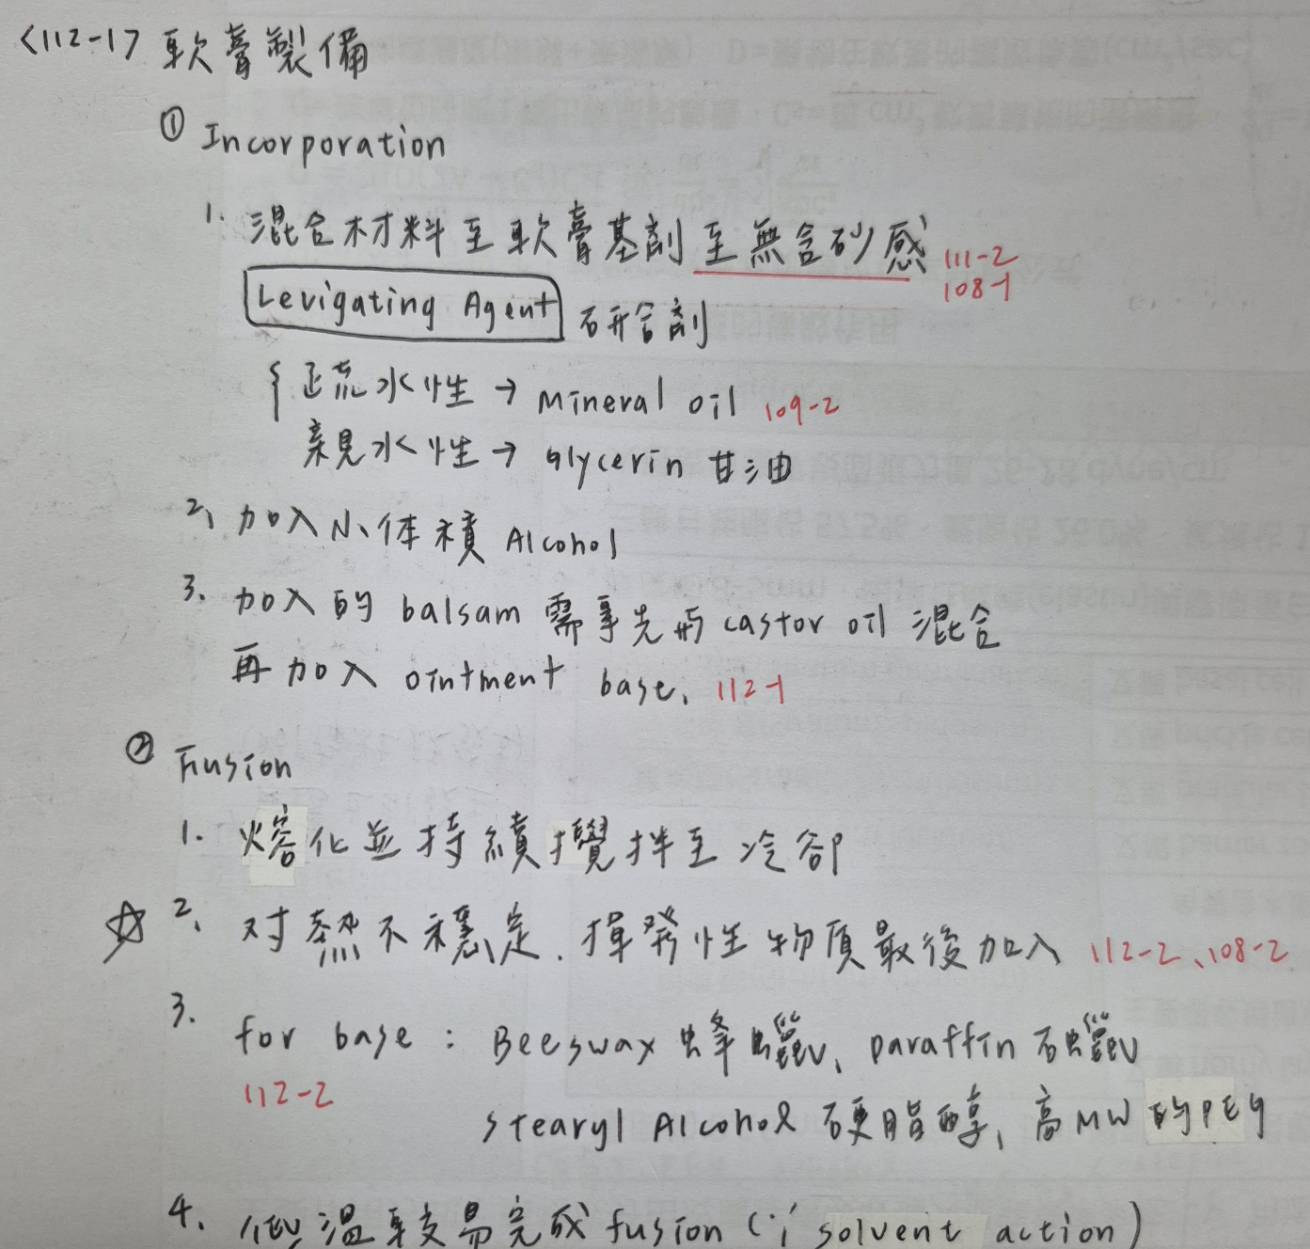 <112-1> 軟膏製備
① Incorporation
1. 混合材料至軟膏基劑至無含砂感 111-2
108-1
Levigating Agent 研合劑
{ 疏水性 → mineral oil 109-2
親水性 → Glycerin 甘油
2、加入小体積 Alcohol
3、加入的 balsam 需事先與 castor oil 混合
再加入 ointment base. 112-1
② Fusion
1. 熔化並持續攪拌至冷卻
☆ 2、对熱不穩定、揮發性物质最後加入 112-2、108-2
3. for base : Beeswax 蜂蠟、paraffin 石蠟、
112-2
stearyl Alcohol 硬脂醇、高MW的PEG
4. 低溫較易完成 fusion (∵ solvent action)